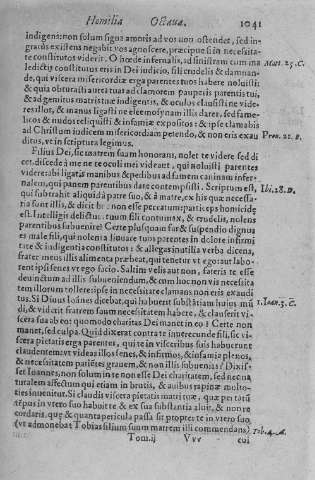 Homilia Octaua. 1041
indigens: non solum signa amoris ad vos non ostendet, sed in-
gratus existens negabit vos agnoscere, præcipue si in necessita-
te constitutos viderit. O hœde infernalis, ad sinistram cum ma
ledictis constitutus eris in Dei iudicio, fili crudelis & damnan-
de, qui viscera misericordiæ erga parentes tuos habere noluisti:
& quia obturasti aures tuas ad clamorem pauperis parentis tui,
& ad gemitus matris tuæ indigentis, & oculos clausisti ne vide-
res illos, & manus ligasti ne eleemosynam illis dares, sed fame-
licos & nudos reliquisti & infamiæ expositos: & ipse clamabis
ad Christum iudicem misericordiam petendo, & non eris exau
ditus, vt in scriptura legimus.
Mat. 25. C.
Pro. 21. B.
Filius Dei, sic matrem suam honorans, nolet te videre sed di
cet: discede à me ne te oculi mei videant, qui noluisti parentes
videre: abi ligatis manibus & pedibus ad famem caninam infer-
nalem, qui panem parentibus dare contempsisti. Scriptum est,
qui subtrahit aliquid à patre suo, & à matre, ex his quæ necessa-
ria sunt illis, & dicit hoc non esse peccatum: particeps homicide
est. Intelligis delictum tuum fili contumax, & crudelis, nolens
parentibus subuenire? Certe plusquam fur & suspendio dignus
es male fili, qui nolens iuuare tuos parentes in dolore infirmi
tate & indigentia constitutos: & allegas inutilia verba dicens,
frater meus illis alimenta præbeat, qui tenetur vt ego: aut labo-
rent ipsi senes vt ego facio. Saltim velis aut non, fateris te esse
deuinctum ad illis subueniendum, & cum hoc non vis necessita
tem illorum tollere: ipse in necessitate clamans non eris exaudi
tus. Si Diuus Ioannes dicebat, qui habuerit substãtiam huius mũ
di, & viderit fratrem suum necessitatem habere, & clauserit vi-
scera sua ab eo: quomodo charitas Dei manet in eo? Certe non
manet, sed culpa. Quid dixerat contra te inuerecunde fili, sic vi-
scera pietatis erga parentes, qui te in visceribus suis habuerunt
claudentem: vt videas illos senes, & infirmos, & infamia plenos,
& necessitatem patiẽtes grauem, & non illis subuenias? Dixis-
set Ioannes, non solum in te non esse Dei charitatem, sed nec na
turalem affectum qui etiam in brutis, & auibus rapinæ molto-
ties inuenitur. Si claudis viscera pietatis matri tuæ, quæ per totũ
tẽpus in vtero suo habuit te & ex sua substantia aluit, & non re
cordaris, quæ & quanta pericula passa sit propter te in vtero suo
(vt admonebat Tobias filium suum matrem illi commendans)
Ibi. 28. D.
1. Ioan. 3. C.
Tob. 4. A.
Tom. ij Vvv cui